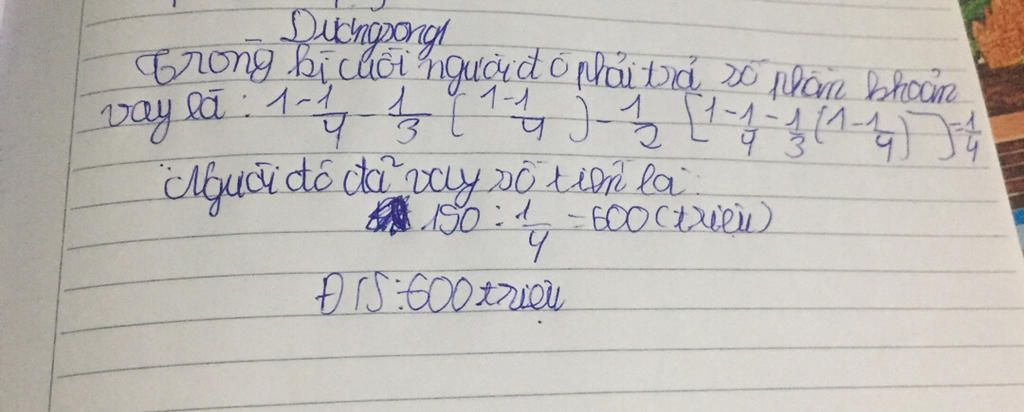 Dươngsong
Trong kì cuối người đó phải trả số phần khoản
vay là : 1 - 1/4 - 1/3 ( 1 - 1/4 ) - 1/2 [ 1 - 1/4 - 1/3 ( 1 - 1/4 ) ] = 1/4
Người đó đã vay số tiền là:
150 : 1/4 = 600 (triệu)
Đ/S: 600 triệu